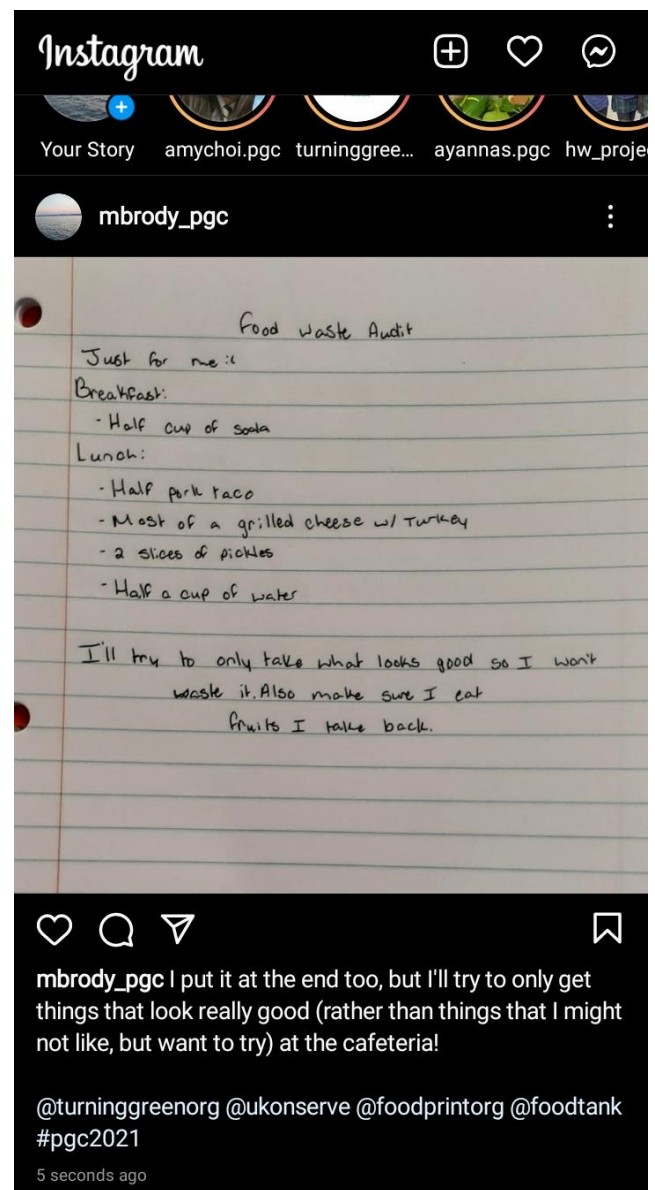 Instagram
Your Story amychoi.pgc turninggree... ayannas.pgc hw_proje
mbrody_pgc
Food Waste Audit
Just for me :(
Breakfast:
- Half cup of soda
Lunch:
- Half pork taco
- Most of a grilled cheese w/ Turkey
- 2 slices of pickles
- Half a cup of water
I'll try to only take what looks good so I won't
waste it. Also make sure I eat
fruits I take back.
mbrody_pgc I put it at the end too, but I'll try to only get
things that look really good (rather than things that I might
not like, but want to try) at the cafeteria!
@turninggreenorg @ukonserve @foodprintorg @foodtank
#pgc2021
5 seconds ago